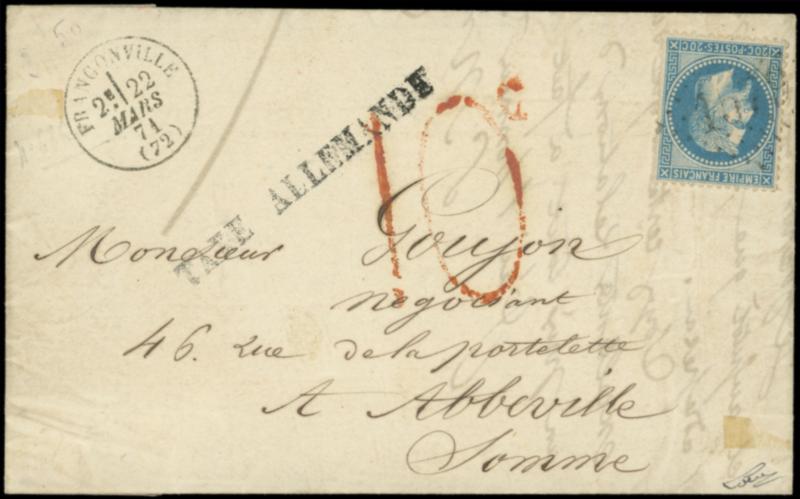 FRANCONVILLE
2E 22
MARS
71
(72)
TAXE ALLEMANDE
10
20C POSTES 20C
EMPIRE FRANCAIS
Monsieur Goujon
négociant
46. Rue de la portelette
A Abbeville
Somme